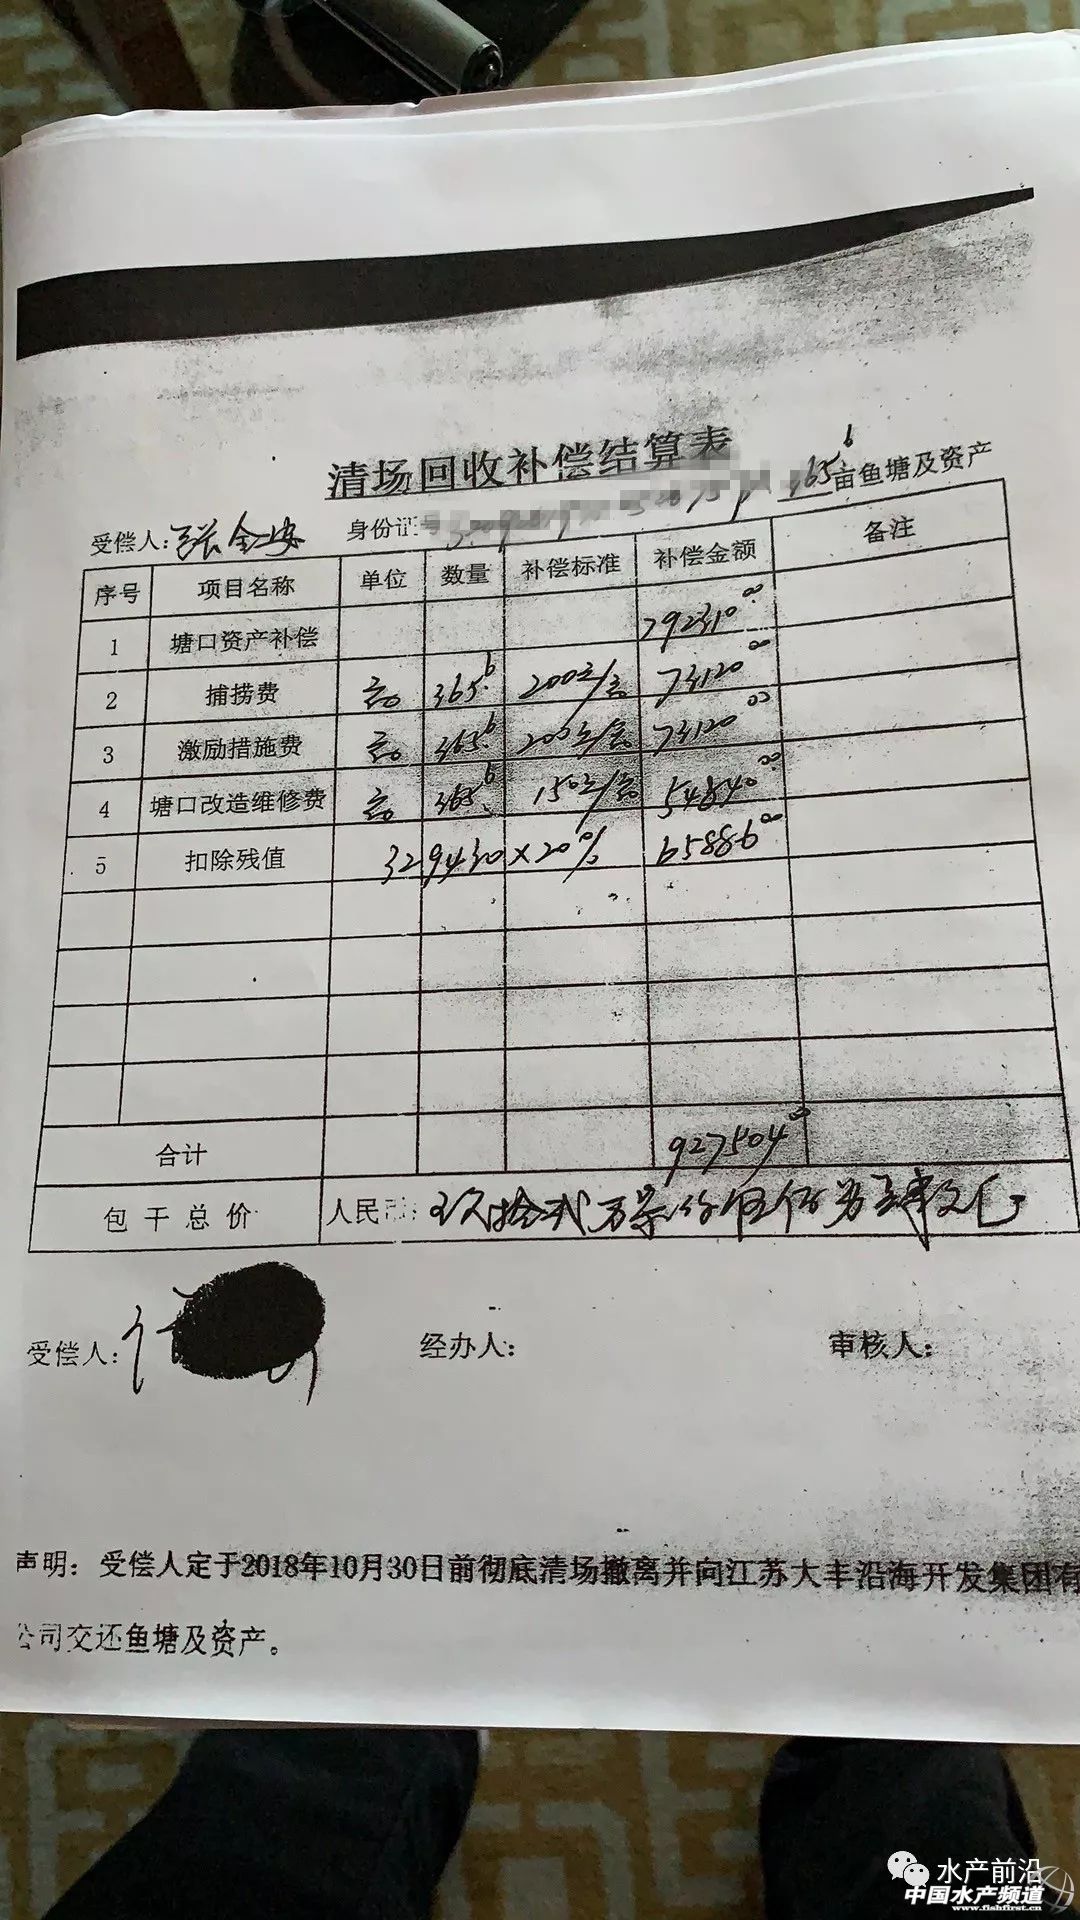 清场回收补偿结算表
受偿人: 身份证号 365.6 亩鱼塘及资产
序号 项目名称 单位 数量 补偿标准 补偿金额 备注
1 塘口资产补偿 792310.00
2 捕捞费 亩 365.6 200元/亩 73120.00
3 激励措施费 亩 365.6 200元/亩 73120.00
4 塘口改造维修费 亩 365.6 150元/亩 54840.00
5 扣除残值 329430×20% 65886.00
合计 927504.00
包干总价 人民币: 玖拾贰万柒仟伍佰零肆元
受偿人: 经办人: 审核人:
声明：受偿人定于2018年10月30日前彻底清场撤离并向江苏大丰沿海开发集团有
公司交还鱼塘及资产。
水产前沿
中国水产频道
www.fishfirst.cn